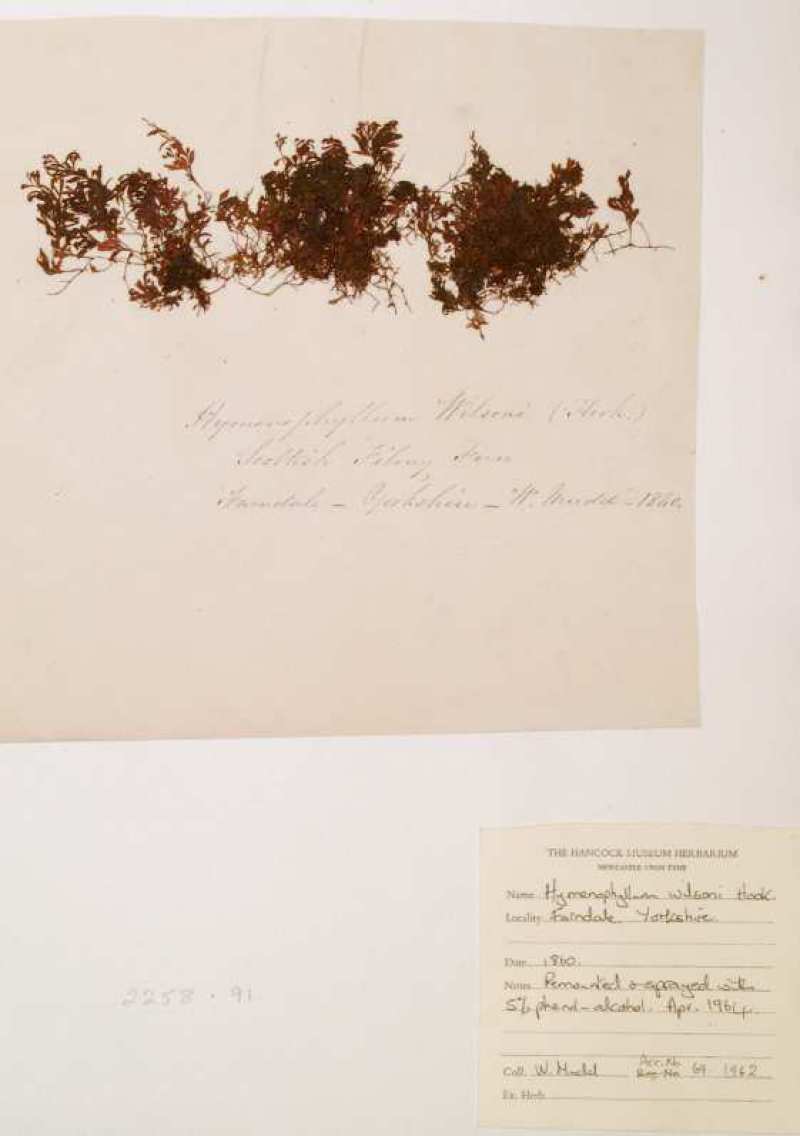 Hymenophyllum Wilsoni (Hook.)
Scottish Filmy Fern
Farndale - Yorkshire - W. Mudd - 1860.
THE HANCOCK MUSEUM HERBARIUM
NEWCASTLE UPON TYNE
Name Hymenophyllum wilsoni Hook.
Locality Farndale. Yorkshire.
Date 1860.
Notes Remounted & sprayed with
5% phenol-alcohol. Apr. 1964.
2258 . 91
Acc. No.
Coll. W. Mudd Reg. No. 69 1962
Ex. Herb.